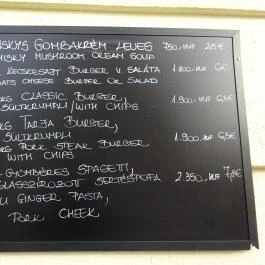 SKYS GOMBAKRÉM LEVES 750.-HUF 2,5€
HISKY MUSHROOM CREAM SOUP
KECSKESAJT BURGER V. SALÁTA 1.800.-HUF 6€
OATS CHEESE BURGER OR SALAD
CLASSIC BURGER, 1.900.-HUF 6,3€
SÜLTKRUMPLI/WITH CHIPS
TARJA BURGER,
SÜLTKRUMPLI 1.900.-HUF 6,3€
PORK STEAK BURGER
WITH CHIPS
GYÖMBÉRES SPAGETTI,
GLASSZÍROZOTT SERTÉSPOFA 2.350.-HUF 7,8€
U GINGER PASTA,
PORK CHEEK